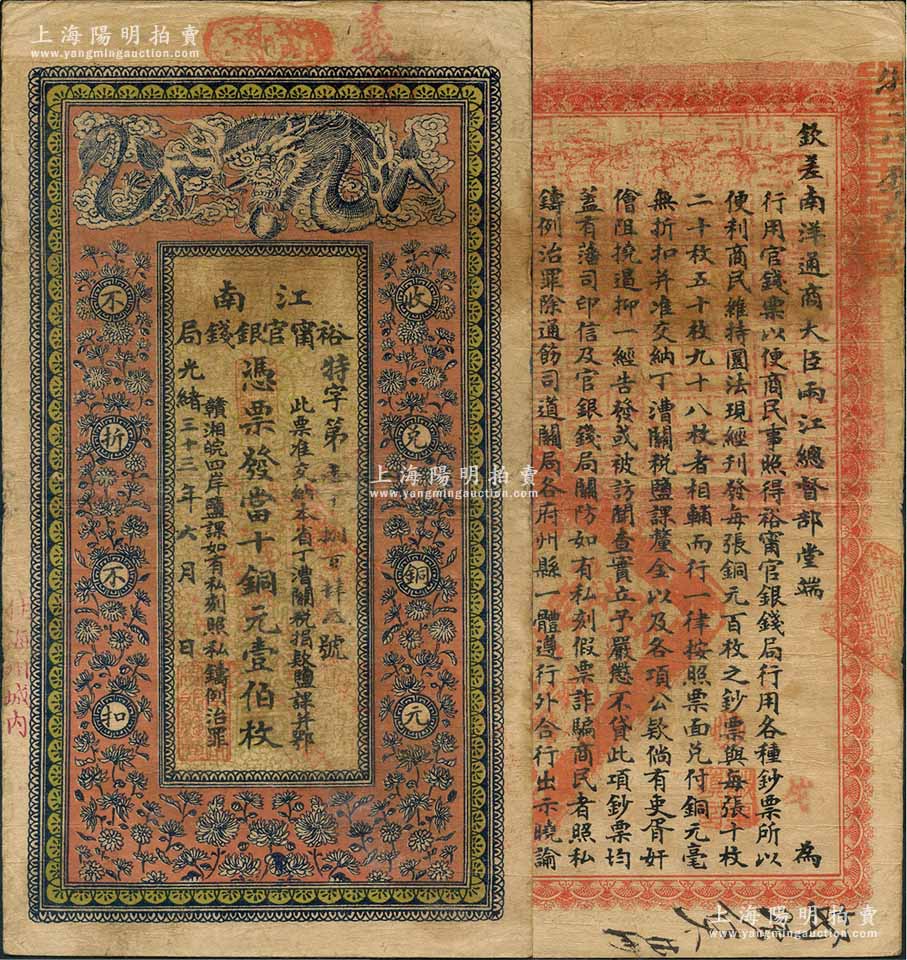 上海陽明拍賣
www.yangmingauction.com
江南
裕甯官銀錢局
特字第
捌百肆
號
此票准交納本省丁漕關稅捐款鹽課并鄂
憑票發當十銅元壹伯枚
贛湘皖四岸鹽課如有私刻照私鑄例治罪
光緒三十三年六月 日
收兌銅元
不折不扣
城內
上海陽明拍賣
www.yangmingauction.com
欽差南洋通商大臣兩江總督部堂端 為
行用官錢票以便商民事照得裕甯官銀錢局行用各種鈔票所以
便利商民維持圜法現經刊發每張銅元百枚之鈔票與每張十枚
二十枚五十枚九十八枚者相輔而行一律按照票面兌付銅元毫
無折扣并准交納丁漕關稅鹽課釐金以及各項公款倘有吏胥奸
儈阻撓遏抑一經告發或被訪聞查實立予嚴懲不貸此項鈔票均
蓋有藩司印信及官銀錢局關防如有私刻假票詐騙商民者照私
鑄例治罪除通飭司道關局各府州縣一體遵行外合行出示曉諭
上海陽明拍賣
www.yangmingauction.com